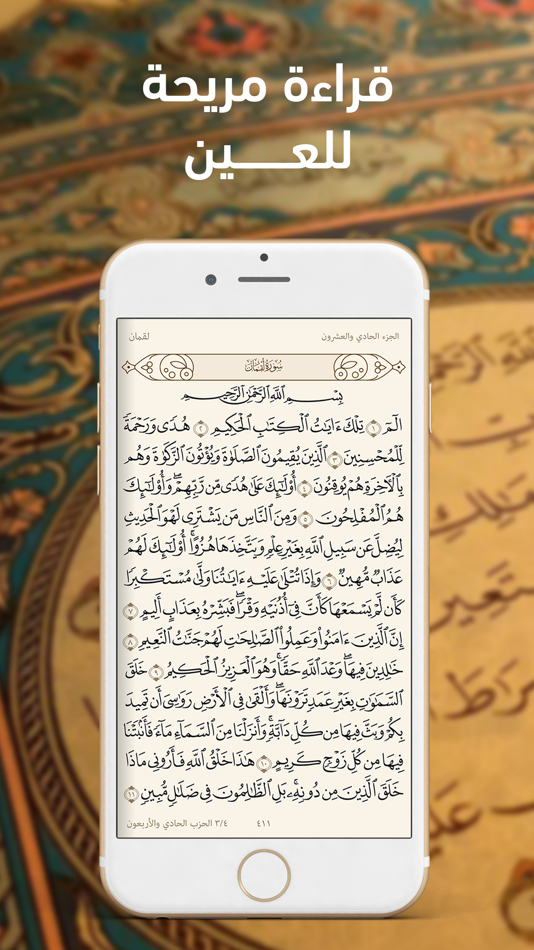 قراءة مريحة
للعـــــين
الجزء الحادي والعشرون
لقمان
سُورَةُ لُقْمَانَ
بِسْمِ ٱللَّهِ ٱلرَّحْمَٰنِ ٱلرَّحِيمِ
الٓمٓ ١ تِلْكَ ءَايَٰتُ ٱلْكِتَٰبِ ٱلْحَكِيمِ ٢ هُدًى وَرَحْمَةً
لِّلْمُحْسِنِينَ ٣ ٱلَّذِينَ يُقِيمُونَ ٱلصَّلَوٰةَ وَيُؤْتُونَ ٱلزَّكَوٰةَ وَهُم
بِٱلْأٓخِرَةِ هُمْ يُوقِنُونَ ٤ أُو۟لَٰٓئِكَ عَلَىٰ هُدًى مِّن رَّبِّهِمْ ۖ وَأُو۟لَٰٓئِكَ
هُمُ ٱلْمُفْلِحُونَ ٥ وَمِنَ ٱلنَّاسِ مَن يَشْتَرِى لَهْوَ ٱلْحَدِيثِ
لِيُضِلَّ عَن سَبِيلِ ٱللَّهِ بِغَيْرِ عِلْمٍ وَيَتَّخِذَهَا هُزُوًا ۚ أُو۟لَٰٓئِكَ لَهُمْ
عَذَابٌ مُّهِينٌ ٦ وَإِذَا تُتْلَىٰ عَلَيْهِ ءَايَٰتُنَا وَلَّىٰ مُسْتَكْبِرًا
كَأَن لَّمْ يَسْمَعْهَا كَأَنَّ فِىٓ أُذُنَيْهِ وَقْرًا ۖ فَبَشِّرْهُ بِعَذَابٍ أَلِيمٍ ٧
إِنَّ ٱلَّذِينَ ءَامَنُوا۟ وَعَمِلُوا۟ ٱلصَّٰلِحَٰتِ لَهُمْ جَنَّٰتُ ٱلنَّعِيمِ ٨
خَٰلِدِينَ فِيهَا ۖ وَعْدَ ٱللَّهِ حَقًّا ۚ وَهُوَ ٱلْعَزِيزُ ٱلْحَكِيمُ ٩ خَلَقَ
ٱلسَّمَٰوَٰتِ بِغَيْرِ عَمَدٍ تَرَوْنَهَا ۖ وَأَلْقَىٰ فِى ٱلْأَرْضِ رَوَٰسِىَ أَن تَمِيدَ
بِكُمْ وَبَثَّ فِيهَا مِن كُلِّ دَآبَّةٍ ۚ وَأَنزَلْنَا مِنَ ٱلسَّمَآءِ مَآءً فَأَنۢبَتْنَا
فِيهَا مِن كُلِّ زَوْجٍ كَرِيمٍ ١٠ هَٰذَا خَلْقُ ٱللَّهِ فَأَرُونِى مَاذَا
خَلَقَ ٱلَّذِينَ مِن دُونِهِۦ ۚ بَلِ ٱلظَّٰلِمُونَ فِى ضَلَٰلٍ مُّبِينٍ ١١
٤١١
٣/٤ الحزب الحادي والأربعون